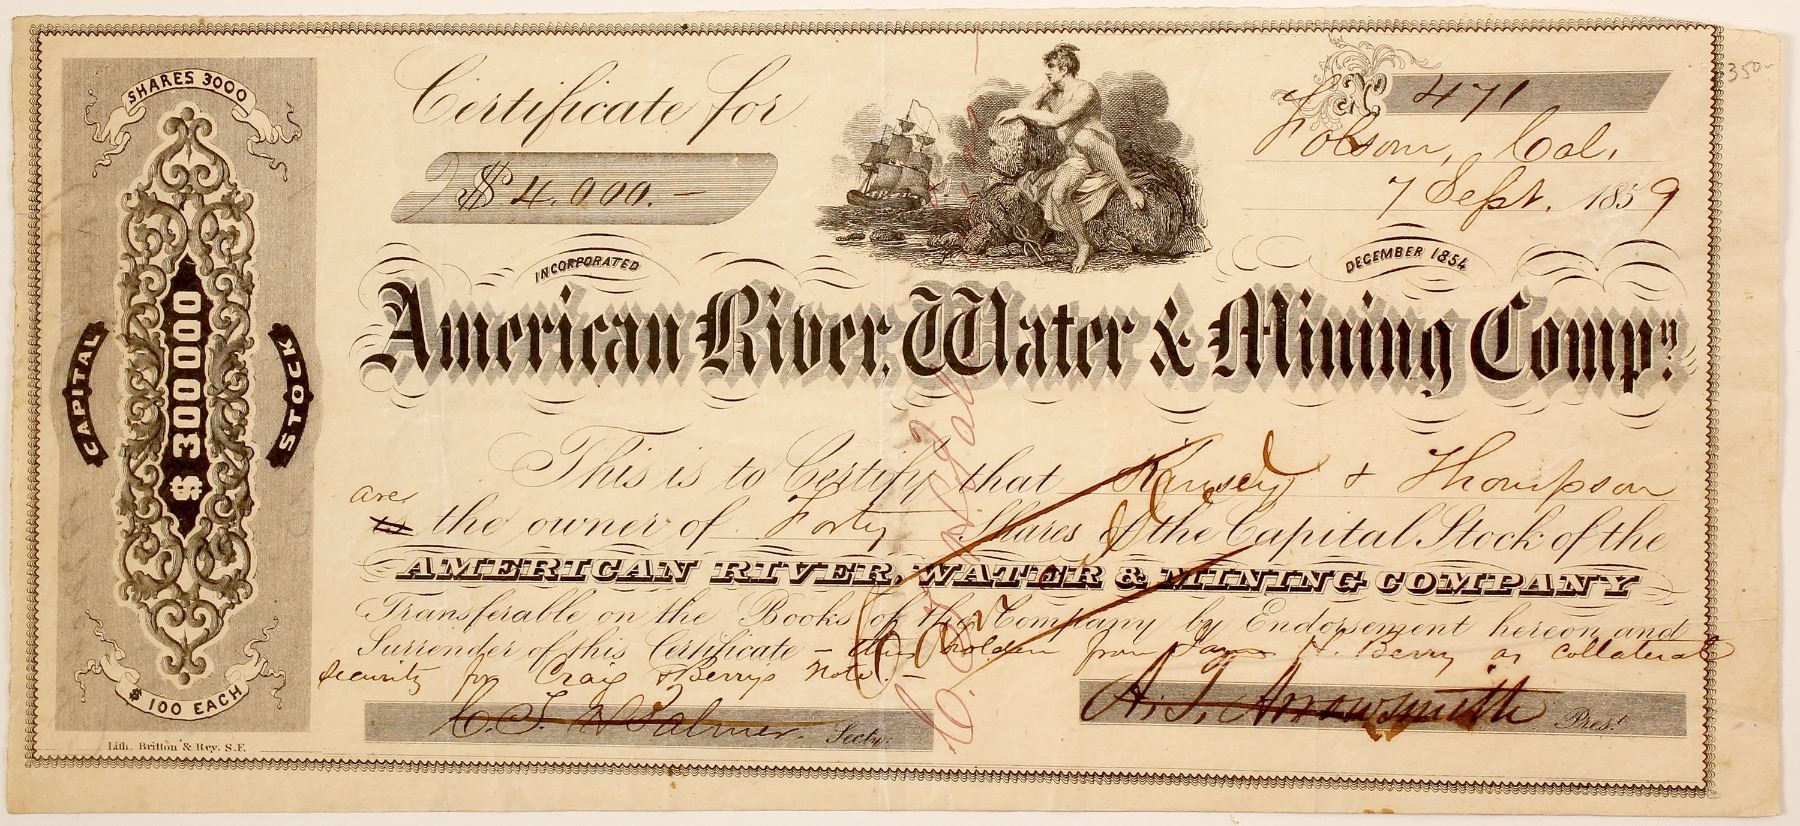 SHARES 3000
CAPITAL
$ 300 000
STOCK
$ 100 EACH
Lith. Britton & Rey. S.F.
Certificate for
$ 4,000.-
471
350-
Folsom, Cal.
7 Sept. 1859
INCORPORATED
DECEMBER 1854
American River, Water & Mining Compy.
This is to Certify that Kinsey & Thompson
are
is the owner of Forty Shares of the Capital Stock of the
AMERICAN RIVER, WATER & MINING COMPANY
Transferable on the Books of the Company by Endorsement hereon and
Surrender of this Certificate - holden from H. Berry as collateral
security for Craig & Berrys Note.-
Cancelled
Secty.
A. T. Arrowsmith Prest.